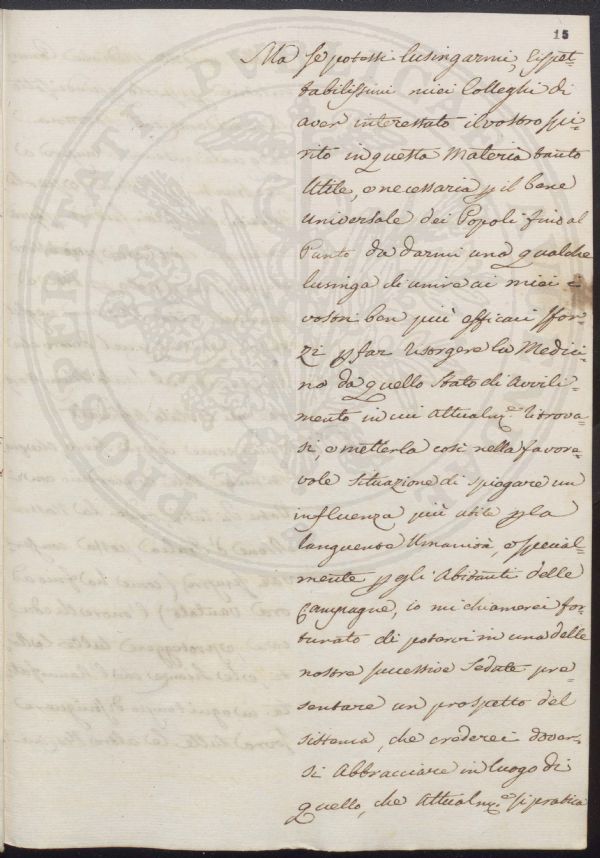 15
Ma se potessi lusingarmi, Rispet=
tabilissimi miei Colleghi di
aver interessato il vostro spi=
rito in questa Materia tanto
Utile, e necessaria p il bene
universale dei Popoli fino al
Punto da darmi una qualche
lusinga di unire ai miei i
vostri ben più efficaci sfor=
zi p far risorgere la Medici=
na da quello Stato di Avvili=
mento in cui Attualm.e ritrova=
si, e metterla così nella favore=
vole situazione di spiegare un
influenza più utile p la
languente Umanità, e special=
mente p gli Abitanti delle
Campagne, io mi chiamerei for=
tunato di potervi in una delle
nostre successive Sedute pre=
sentare un prospetto del
sistema, che crederei dover=
si Abbracciare in luogo di
quello, che Attualm.e si pratica
PROSPERITATI PUBLICAE